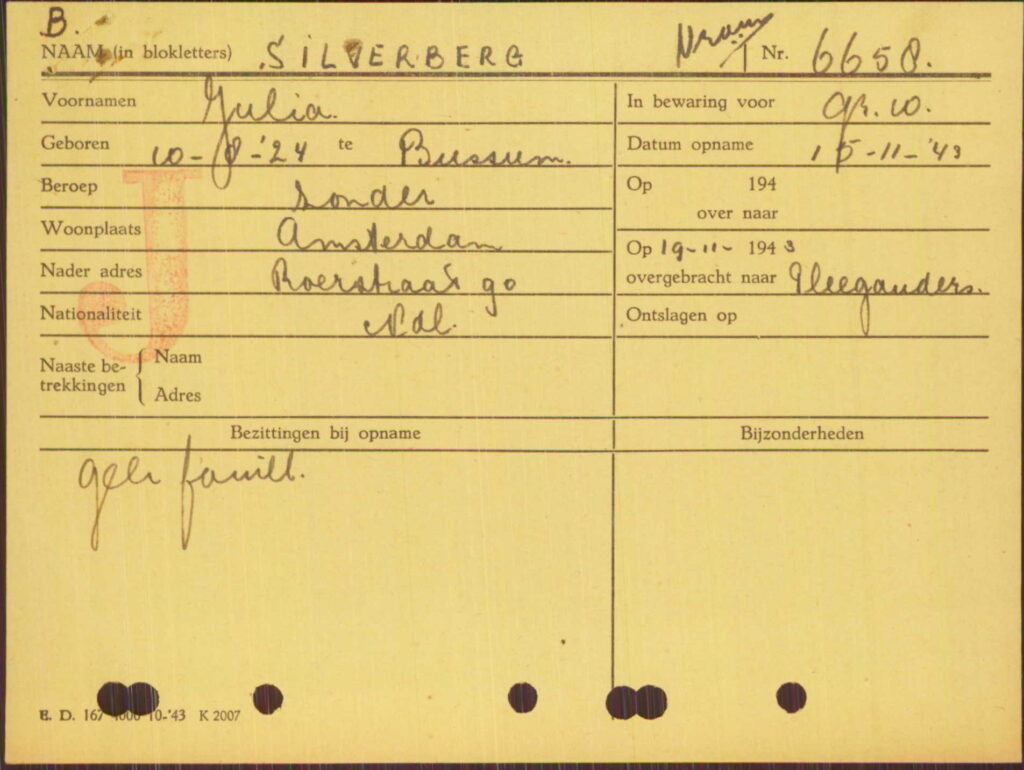 B.
NAAM (in blokletters) SILVERBERG
Nr. 6658.
Voornamen Julia.
In bewaring voor gr. 10.
Geboren 10-8-'24 te Bussum.
Datum opname 15-11-'43
Beroep zonder
Op 194
over naar
Woonplaats Amsterdam
Op 19-11-1943
Nader adres Roerstraat 90
overgebracht naar
Nationaliteit Ndl.
Ontslagen op
Naaste be-
trekkingen
Naam
Adres
J
Bezittingen bij opname
Bijzonderheden
E. D. 167 4000 10-'43 K 2007